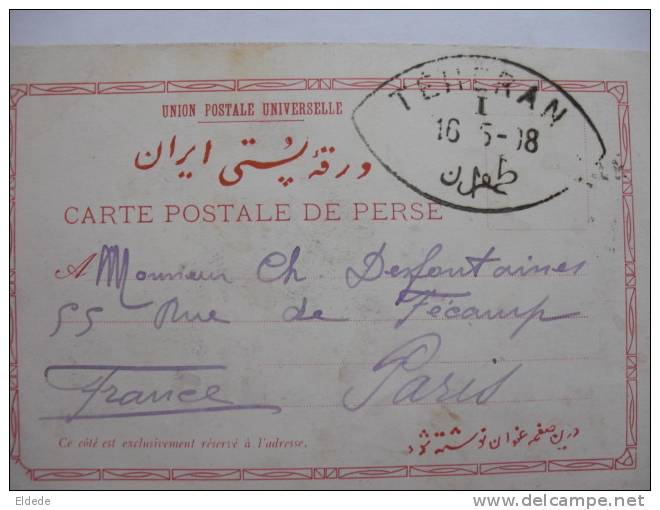 UNION POSTALE UNIVERSELLE
TEHERAN
I
16-5-08
طهران
ورقهٔ پستی ایران
CARTE POSTALE DE PERSE
A Monsieur Ch. Desfontaines
55 Rue de Fécamp
Paris
France
Ce côté est exclusivement réservé à l'adresse.
درین صفحه عنوان نوشته شود
Eldede
delcampe.net